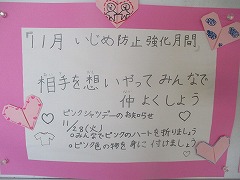 『11月 いじめ防止強化月間
相手を想いやってみんなで
仲よくしよう
ピンクシャツデーのお知らせ
11/28(火)
○みんなでピンクのハートを折りましょう
○ピンク色の物を身に付けましょう